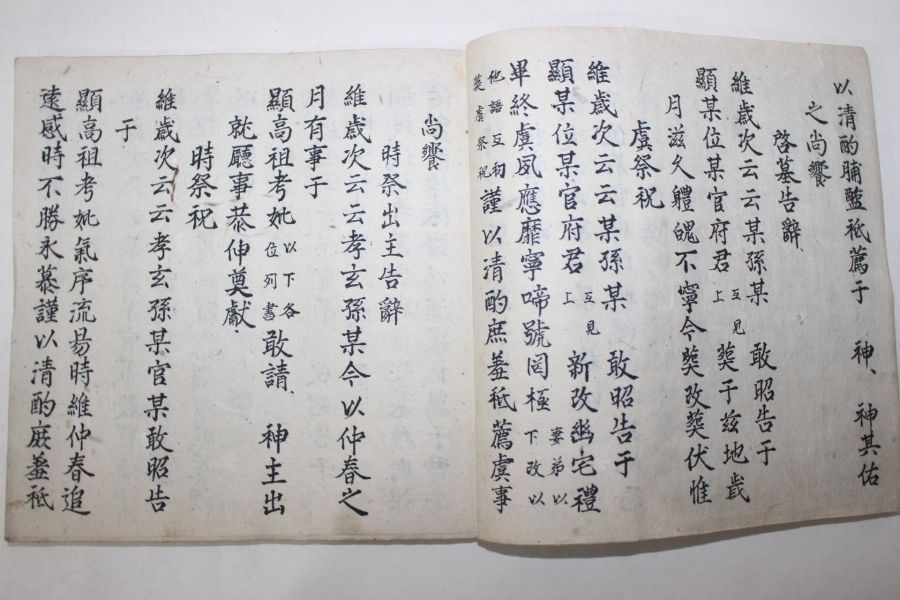 以清酌脯醢祗薦于 神、神其佑
之尚饗
啓墓告辭
維歲次云云某孫某 敢昭告于
顯某位某官府君 互見上 葬于玆地歲
月滋久體魄不寧今葬改葬伏惟
虞祭祝
維歲次云云某孫某 敢昭告于
顯某位某官府君 互見上 新改幽宅禮
畢終虞夙應靡寧啼號罔極 妻弟以下改以
他語互初葬虞祭祝 謹以清酌庶羞祗薦虞事
尚饗
時祭出主告辭
維歲次云云孝玄孫某今以仲春之
月有事于
顯高祖考妣 以下各位列書 敢請 神主出
就廳事恭伸奠獻
時祭祝
維歲次云云孝玄孫某官某敢昭告
于
顯高祖考妣氣序流易時維仲春追
遠感時不勝永慕謹以清酌庶羞祗